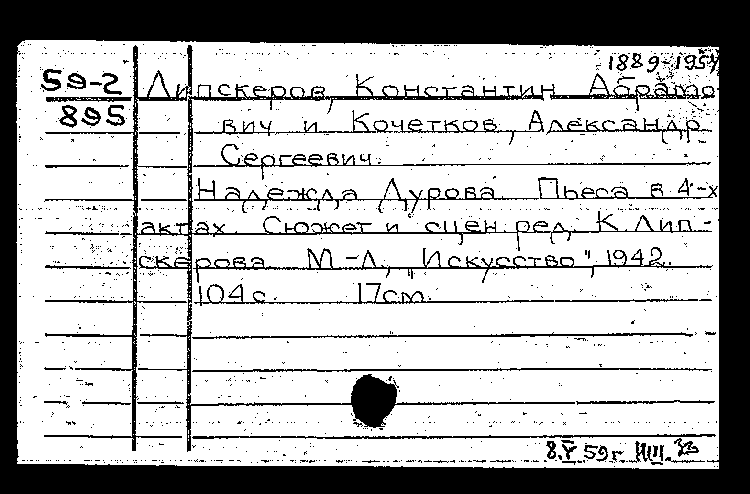 1889-1954
59-2
895
Липскеров, Константин Абрамо-
вич и Кочетков, Александр
Сергеевич.
Надежда Дурова. Пьеса в 4-х
актах. Сюжет и сцен. ред. К. Лип-
скерова. М.-Л., "Искусство", 1942.
104 с. 17 см.
8.V 59 г.